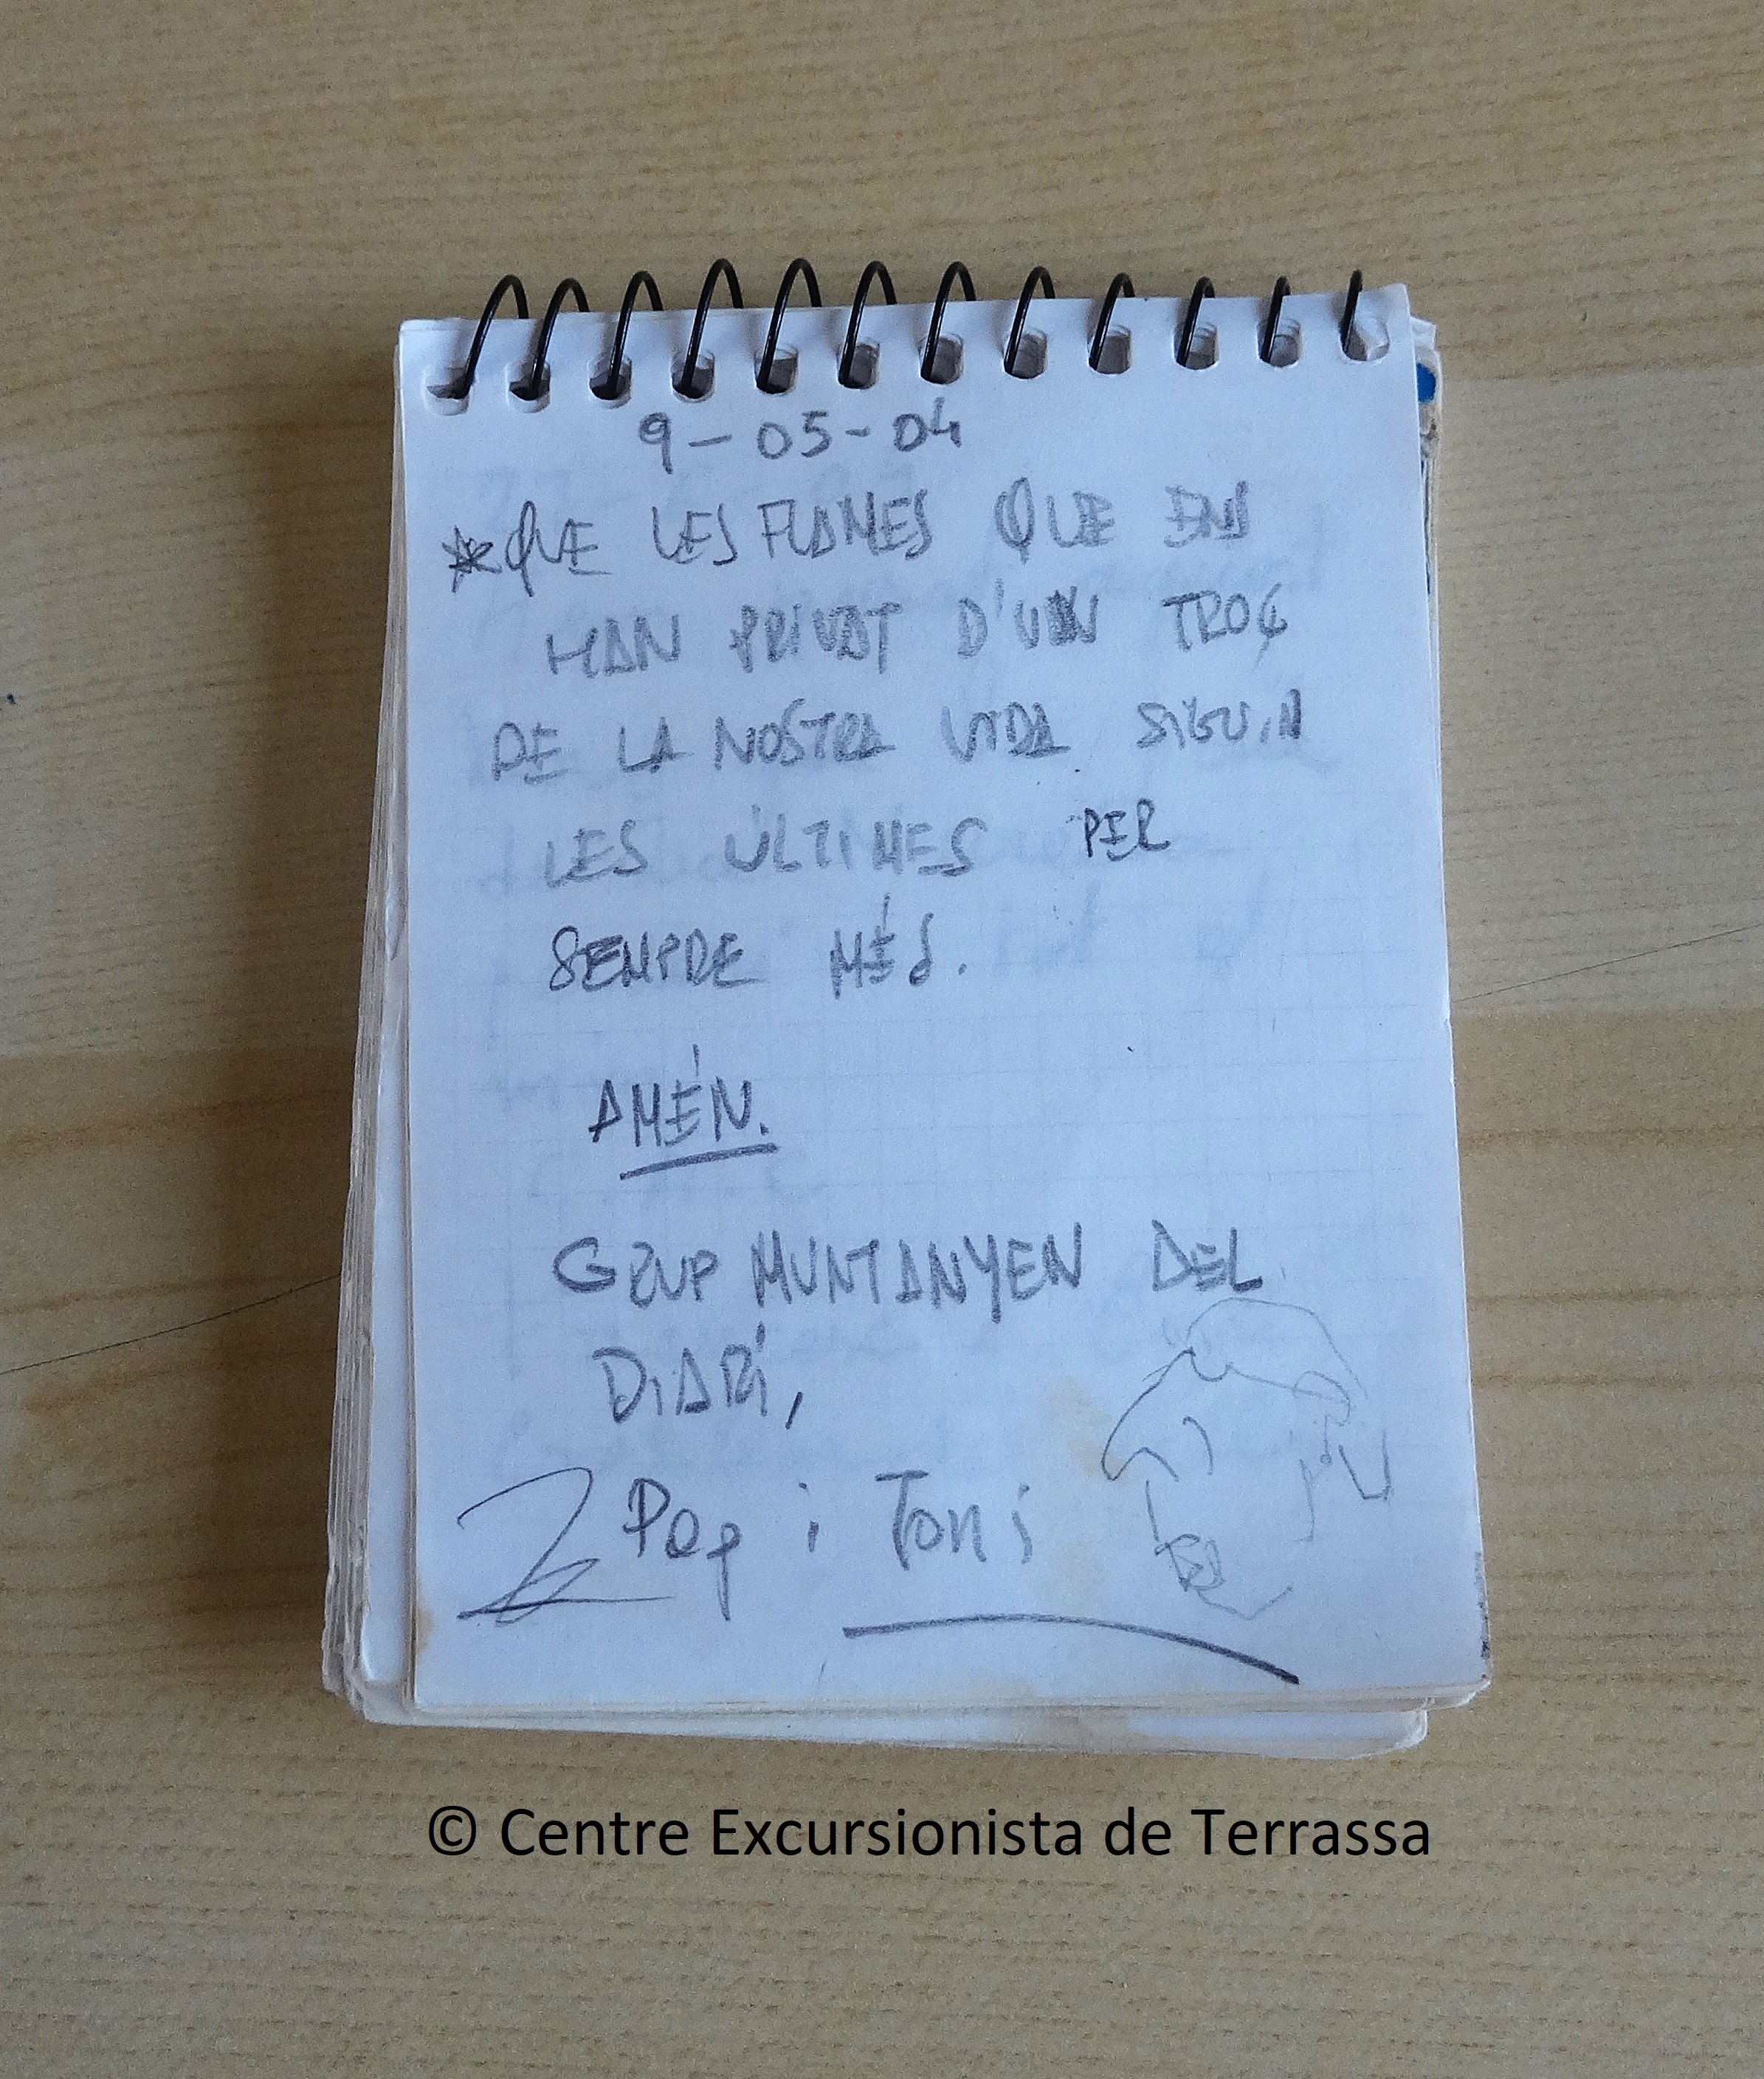 9-05-04
*QUE LES FLAMES QUE ENS
HAN PRIVAT D'UN TROÇ
DE LA NOSTRA VIDA SIGUIN
LES ÚLTIMES PER
SEMPRE MÉS.
AMÉN.
GRUP MUNTANYEN DEL
DIARÍ,
Pep i Toni
© Centre Excursionista de Terrassa